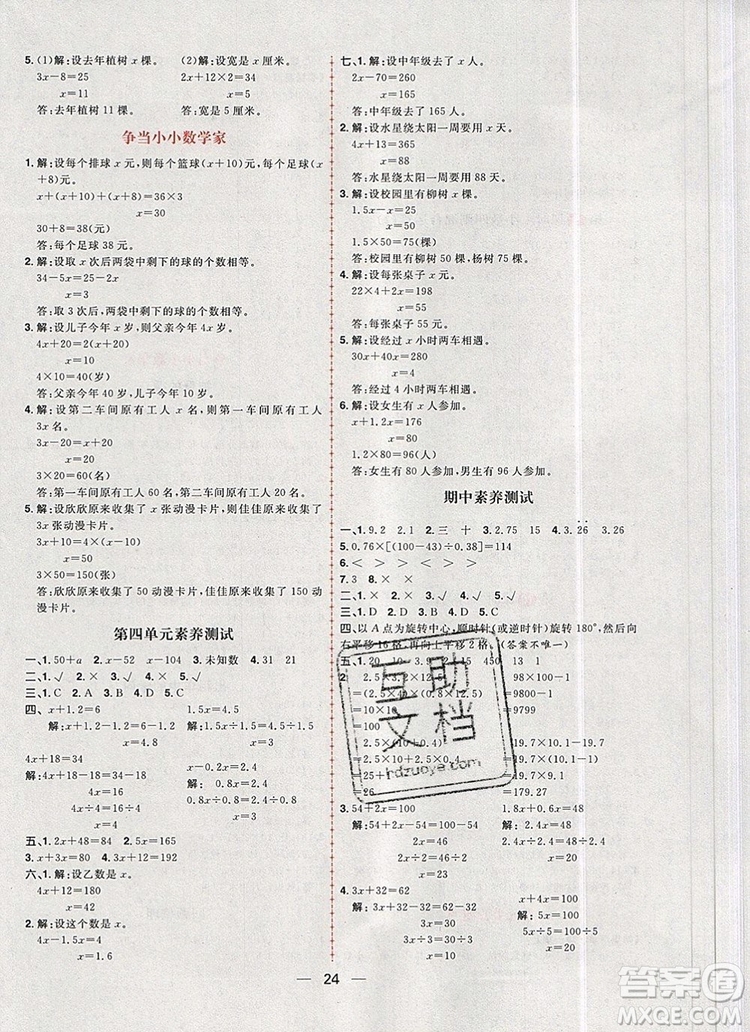 5. (1)解:设去年植树 x 棵。 (2)解:设宽是 x 厘米。
3x-8=25 2x+12×2=34
x=11 x=5
答:去年植树 11 棵。 答:宽是 5 厘米。
争当小小数学家
1. 解:设每个排球 x 元,则每个篮球(x+10)元,每个足球(x
+8)元。
x+(x+10)+(x+8)=36×3
x=30
30+8=38(元)
答:每个足球 38 元。
2. 解:设取 x 次后两袋中剩下的球的个数相等。
34-5x=25-2x
x=3
答:取 3 次后,两袋中剩下的球的个数相等。
3. 解:设儿子今年 x 岁,则父亲今年 4x 岁。
4x+20=2(x+20)
x=10
4×10=40(岁)
答:父亲今年 40 岁,儿子今年 10 岁。
4. 解:设第二车间原有工人 x 名,则第一车间原有工人
3x 名。
3x-20=x+20
x=20
3×20=60(名)
答:第一车间原有工人 60 名,第二车间原有工人 20 名。
5. 解:设欣欣原来收集了 x 张动漫卡片,则佳佳原来收集了
3x 张动漫卡片。
3x=2(x+10)+30
x=50
3×50=150(张)
答:欣欣原来收集了 50 动漫卡片,佳佳原来收集了 150 动
漫卡片。
第四单元素养测试
一、1. 50+a 2. x-52 x-104 3. 未知数 4. 31 21
二、1. C 2. C 3. C 4. B 三、1. × 2. √ 3. √ 4. ×
四、x+1.2=6-1.2 1.5x-x=0.95
解:x+1.2-1.2=6-1.2-1.2 解:1.5x-x=0.95
x=4.8 x=1.9
4x+18=34 x-0.2x=4
解:4x=34-18 解: 0.8x=4
4x÷4=16÷4 0.8x÷0.8=4÷0.8
x=4 x=5
五、1. 2x+48=84 2. 5x=165
3. x+3x=84 4. 2x+15=35
六、1. 解:设乙数是 x。
4x+12=180
x=42
2. 解:设这个数是 x。
4x-1.5x=6
x=2.4
七、1. 解:设中年级去了 x 人。
2x-70=260
x=165
答:中年级去了 165 人。
2. 解:设水星绕太阳一周要用 x 天。
4x+13=365
x=88
答:水星绕太阳一周要用 88 天。
3. 解:设校园里有柳树 x 棵。
1.5x-x=25
x=50
1.5×50=75(棵)
答:校园里有柳树 50 棵,杨树 75 棵。
4. 解:设每张桌子 x 元。
22×4+2x=198
x=55
答:每张桌子 55 元。
5. 解:设经过 x 小时两车相遇。
30x+40x=280
x=4
答:经过 4 小时两车相遇。
6. 解:设女生有 x 人参加。
x+1.2x=176
x=80
1.2×80=96(人)
答:女生有 80 人参加,男生有 96 人参加。
期中素养测试
一、1. 9.2 2.1 2. 三 十 3. 2.75 15 4. 3.26 3.26
5. 0.76×[(100-43)÷0.38]=114
6. < > < > > >
二、1. D 2. C 3. D 4. C 5. C
四、以 A 点为旋转中心,顺时针(或逆时针)旋转 180°,然后向
右平移 16 格,再向上平移 2 格。(答案不唯一)
互助文档
hdzuoye.com
3. 54+2x=100 1.2x-x=0.9
解: 54+2x-54=100-54
2x=46
2x÷2=46÷2
x=23
4. 3x+32=62 x+4x=100
解: 3x+32-32=62-32 解: 5x=100
3x=30 5x÷5=100÷5
x=10 x=20
24
答案圈
MXQE.COM